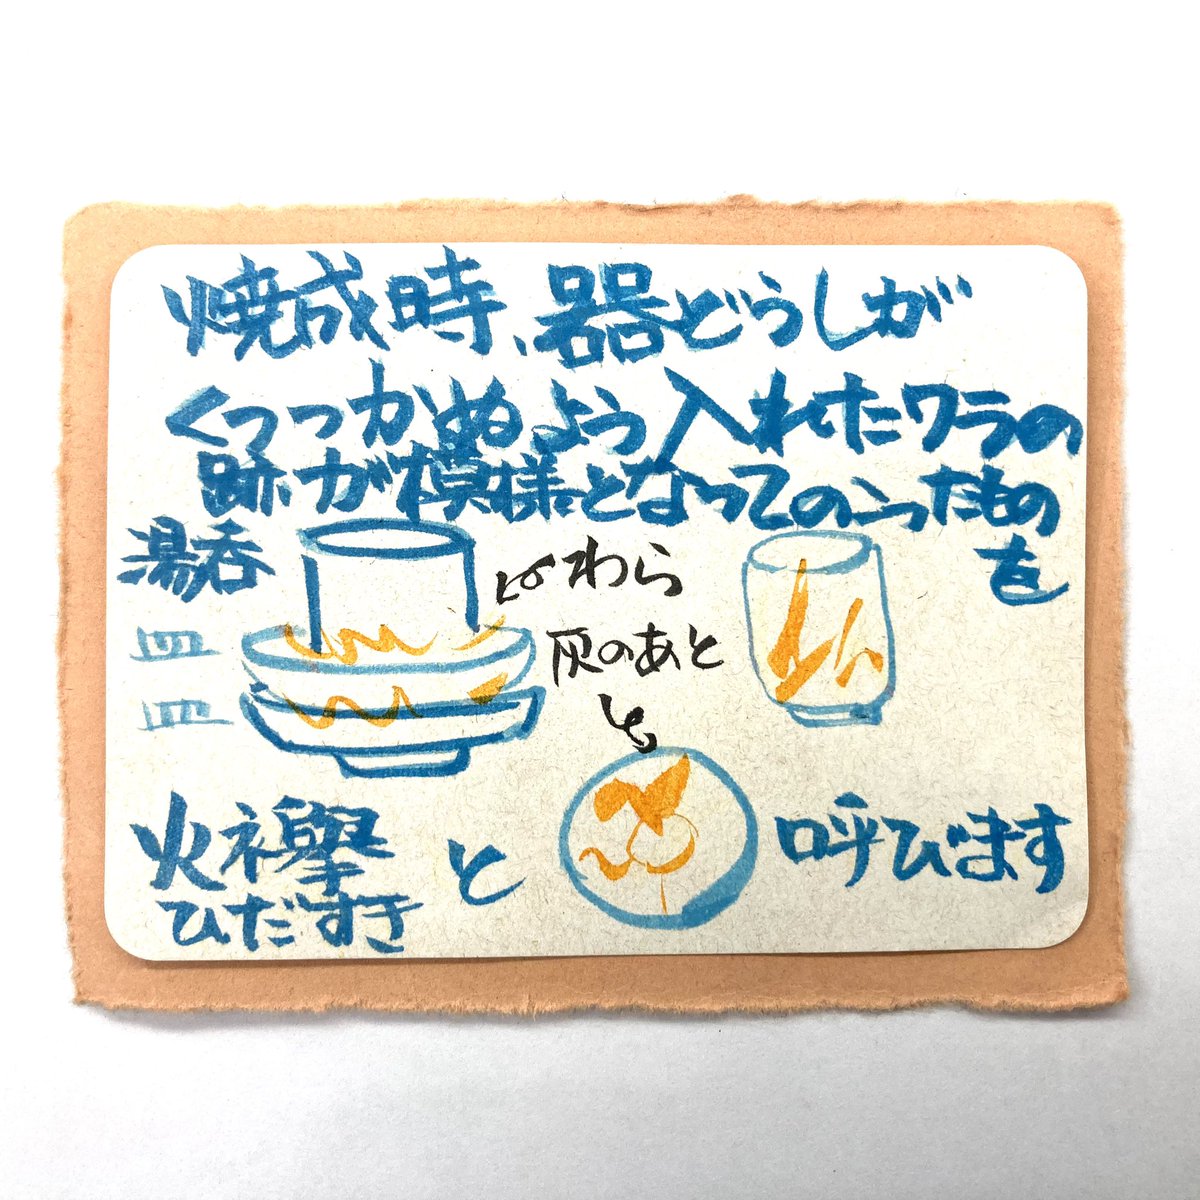 焼成時、器どうしが
くっつかぬよう入れたワラの
跡が模様となってのこったもの
を
湯呑
皿
皿
わら
灰のあと
火襷と
ひだすき
呼びます